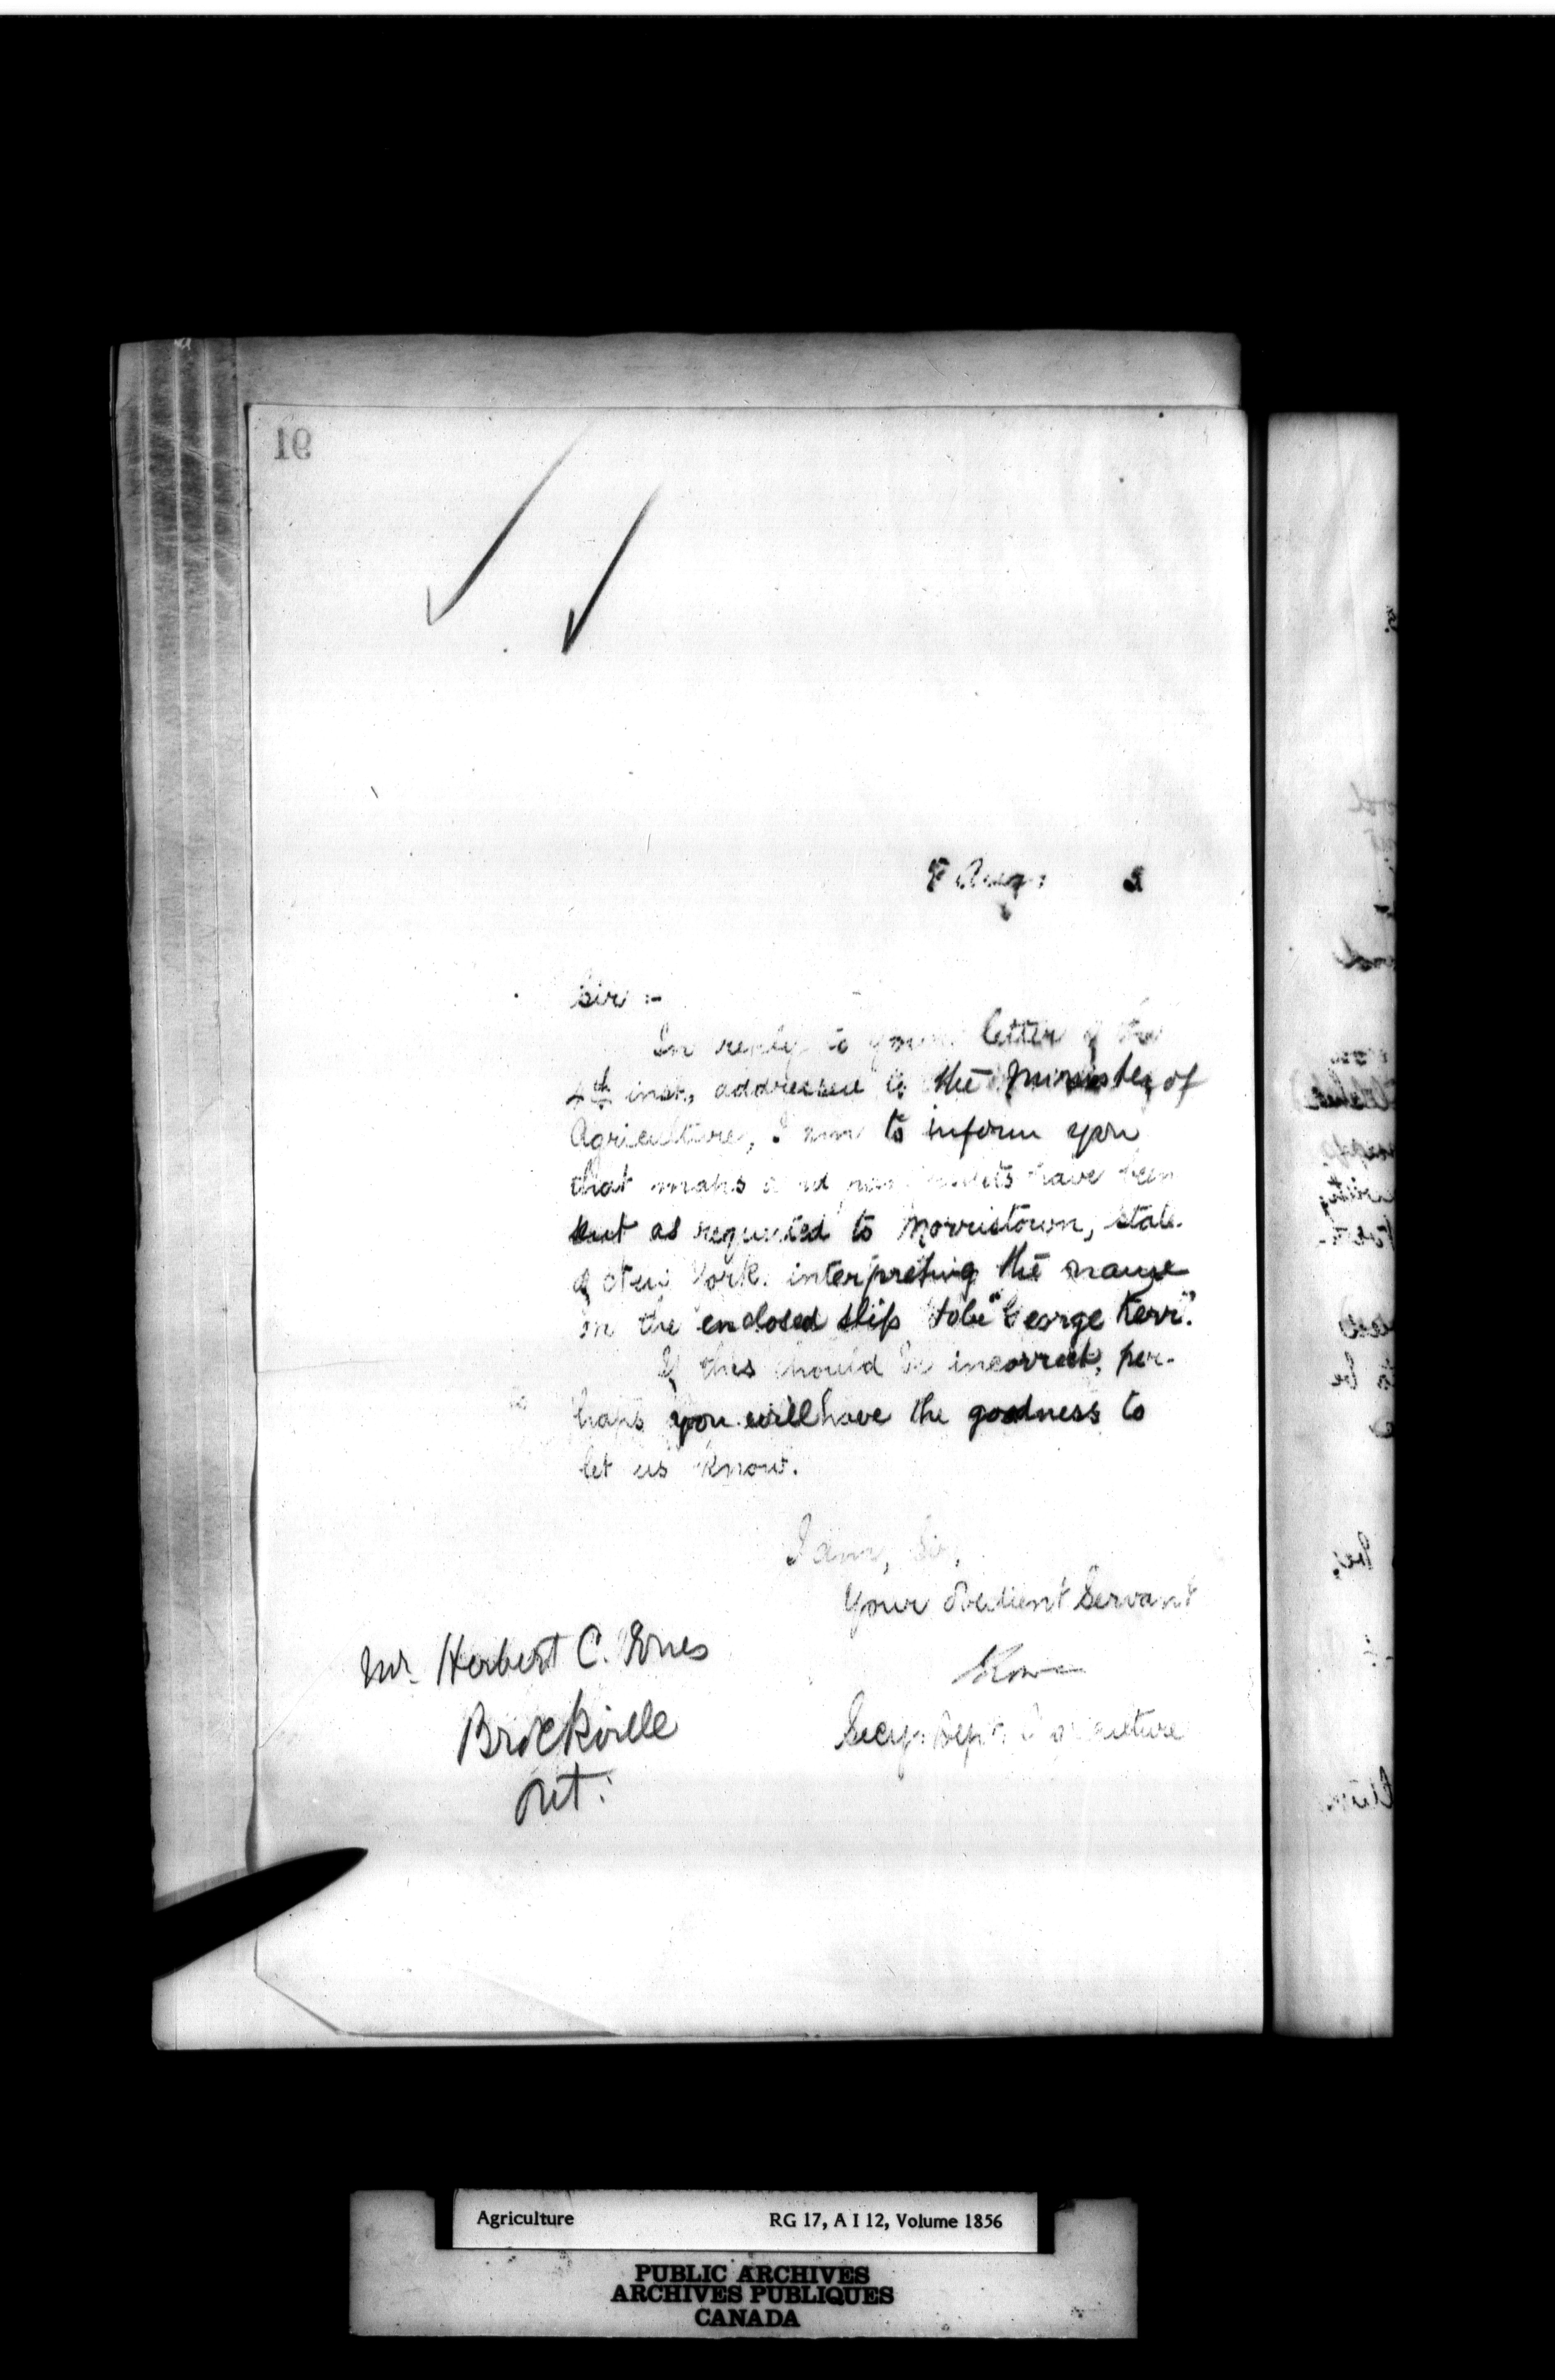 16
8 Aug:
Sir :-
In reply to your letter of the
4th inst, addressed to the Minister of
Agriculture, I am to inform you
that maps and pamphlets have been
sent as requested to Morristown, State
of New York, interpreting the name
on the enclosed slip to be "George Kerr".
If this should be incorrect, per-
haps you will have the goodness to
let us know.
I am, Sir,
Your obedient Servant
Secy: Dept: Agriculture
Mr. Herbert C. Jones
Brockville
Ont:
Agriculture RG 17, A I 12, Volume 1856
PUBLIC ARCHIVES
ARCHIVES PUBLIQUES
CANADA